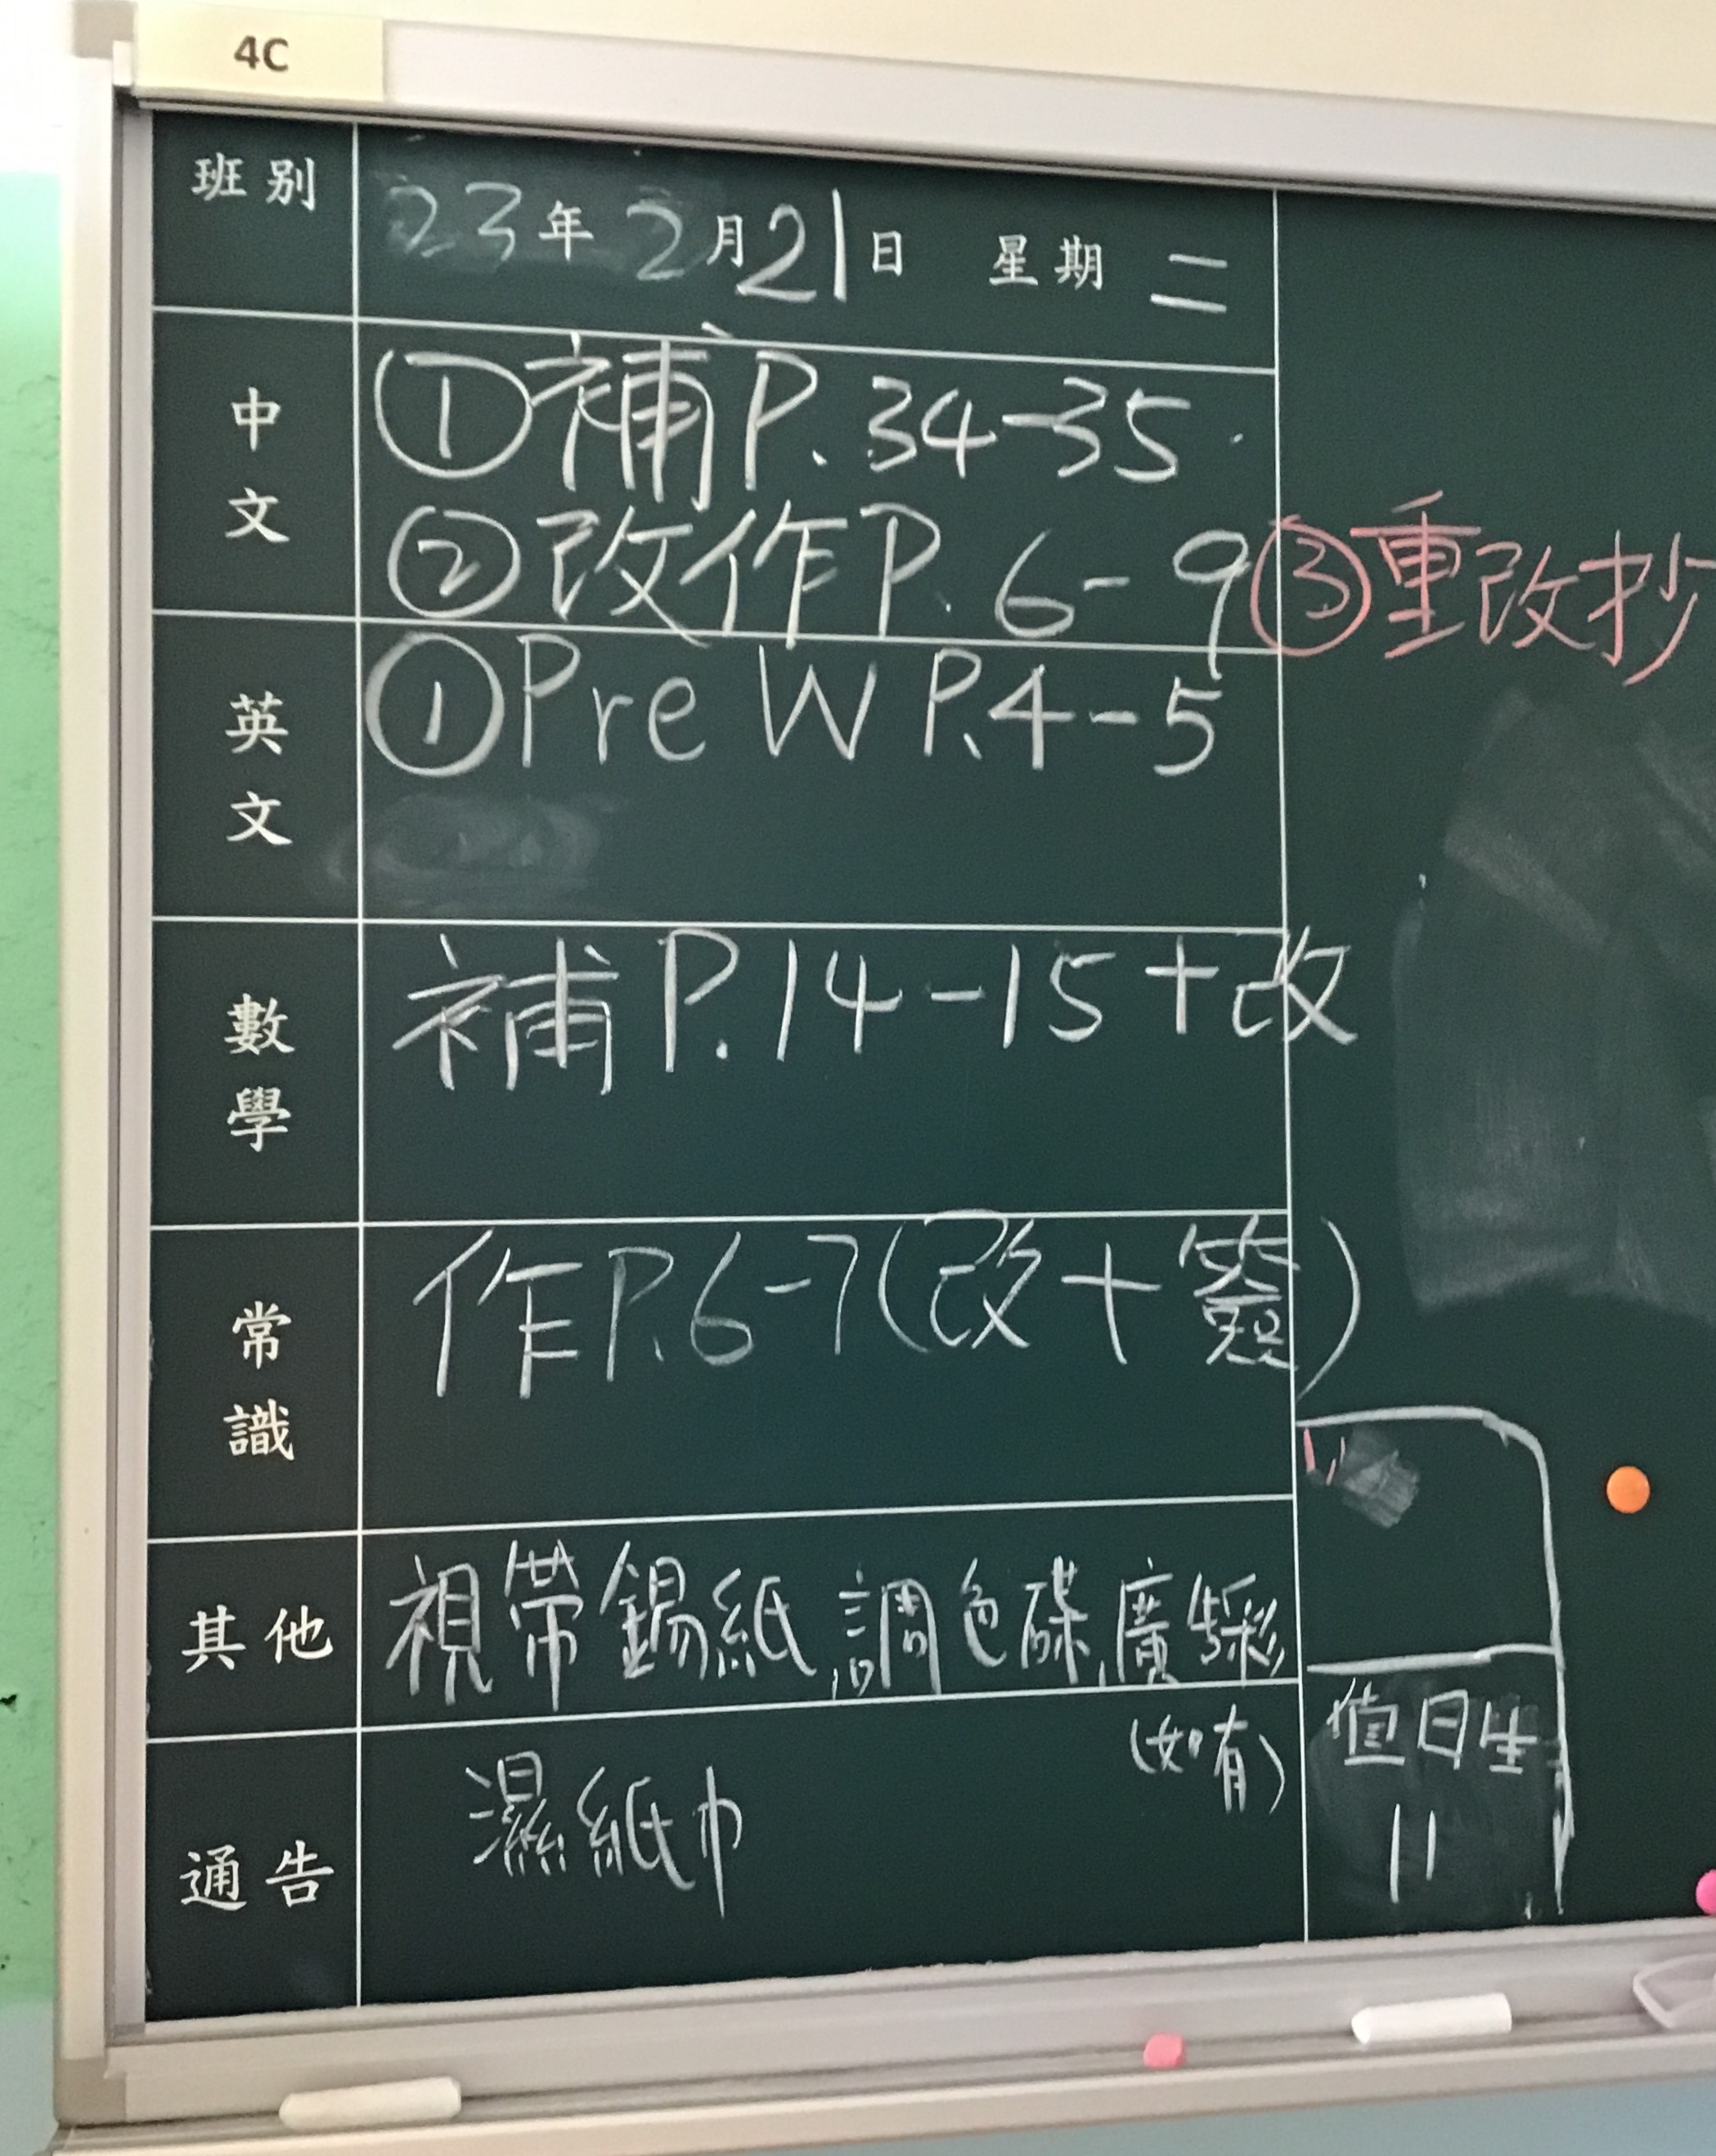 4C
班別 23年2月21日 星期二
中文 ①補P.34-35
②改作P.6-9 ③重改抄
英文 ①Pre W P.4-5
數學 補P.14-15+改
常識 作P.6-7(改+簽)
其他 視帶錫紙,調色碟,廣彩
(如有)
通告 濕紙巾
值日生
11